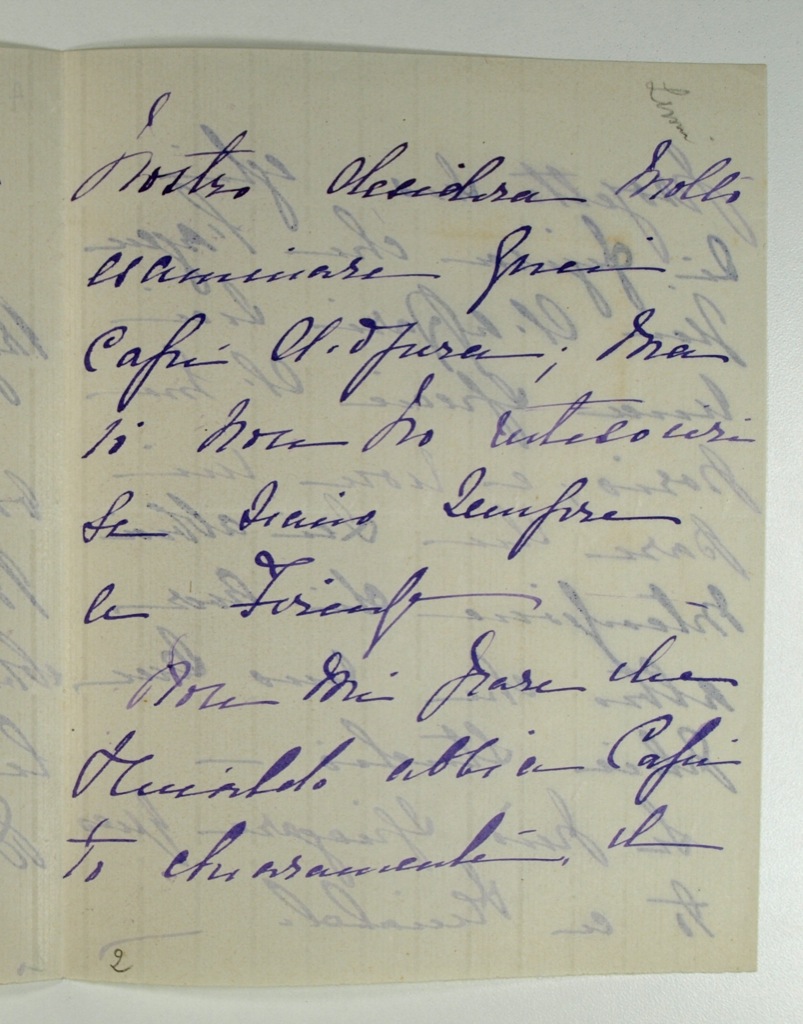 Lemmi
Nostro desidera molto
esaminare quei
Capi d'opera; ma
io non ho
se siano sempre
a Firenze
Non mi pare che
abbia Capi
to chiaramente, il
2